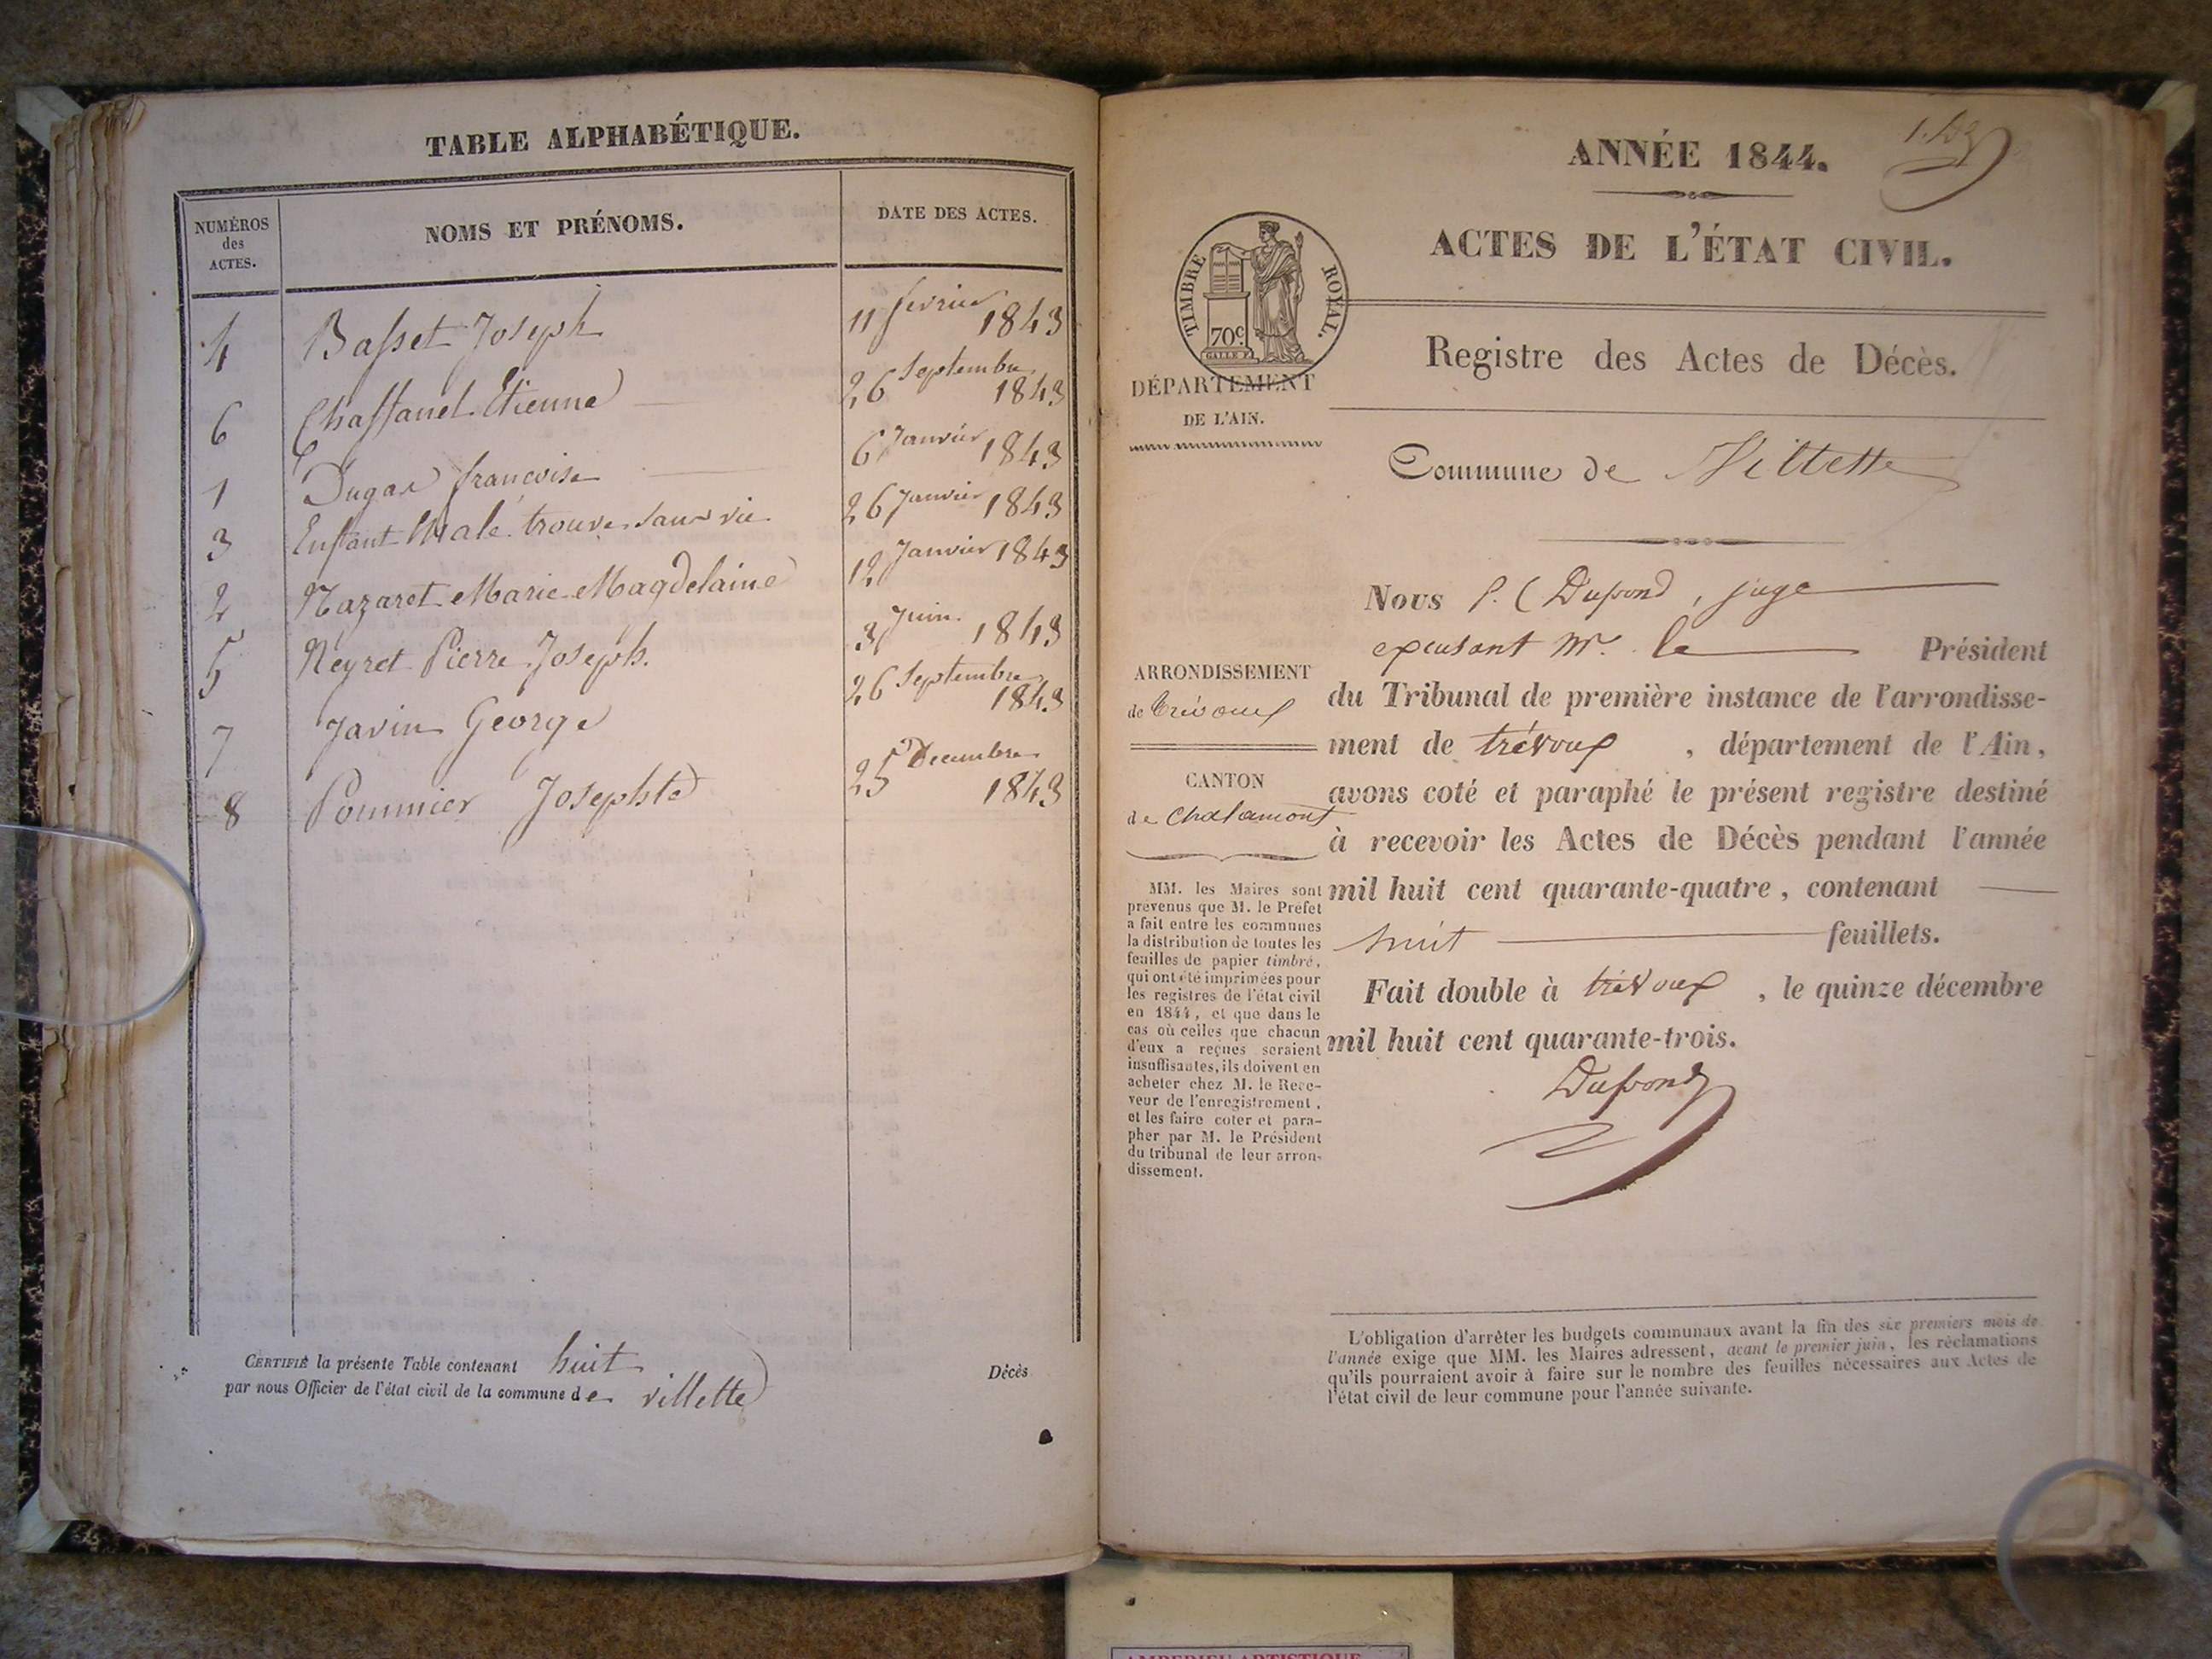 TABLE ALPHABÉTIQUE.
NUMÉROS
des
ACTES.
NOMS ET PRÉNOMS.
DATE DES ACTES.
4 Basset Joseph 11 fevrier 1843
6 Chassanel Etienne 26 Septembre 1843
1 Dugas francoise 6 Janvier 1843
3 Enfant Male trouve sans vie 26 Janvier 1843
2 Nazaret Marie Magdelaine 12 Janvier 1843
5 Neyret Pierre Joseph. 3 Juin 1843
7 Javin George 26 Septembre 1843
8 Pommier Josephte 25 Decembre 1843
CERTIFIÉ la présente Table contenant huit Décès
par nous Officier de l'état civil de la commune de villette
ANNÉE 1844.
ACTES DE L'ÉTAT CIVIL.
TIMBRE ROYAL.
70c
GALLE F.
DÉPARTEMENT
DE L'AIN.
Registre des Actes de Décès.
Commune de Villette
ARRONDISSEMENT
de Trévoux
CANTON
de Chalamont
MM. les Maires sont
prévenus que M. le Préfet
a fait entre les communes
la distribution de toutes les
feuilles de papier timbré,
qui ont été imprimées pour
les registres de l'état civil
en 1844, et que dans le
cas où celles que chacun
d'eux a reçues seraient
insuffisantes, ils doivent en
acheter chez M. le Rece-
veur de l'enregistrement,
et les faire coter et para-
pher par M. le Président
du tribunal de leur arron-
dissement.
Nous Dupond, juge
M. le Président
du Tribunal de première instance de l'arrondisse-
ment de trévoux, département de l'Ain,
avons coté et paraphé le présent registre destiné
à recevoir les Actes de Décès pendant l'année
mil huit cent quarante-quatre, contenant
huit feuillets.
Fait double à trévoux, le quinze décembre
mil huit cent quarante-trois.
Dupond
L'obligation d'arrêter les budgets communaux avant la fin des six premiers mois de
l'année exige que MM. les Maires adressent, avant le premier juin, les réclamations
qu'ils pourraient avoir à faire sur le nombre des feuilles nécessaires aux Actes de
l'état civil de leur commune pour l'année suivante.